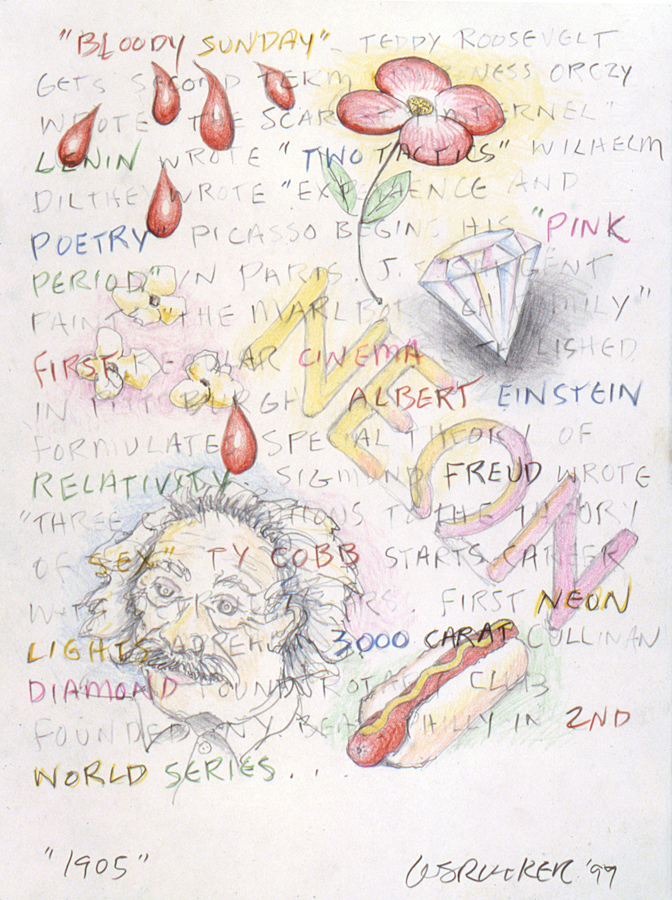 "BLOODY SUNDAY" - TEDDY ROOSEVELT
GETS SECOND TERM. ORCZY
WROTE "THE SCARLET PIMPERNEL"
LENIN WROTE "TWO TACTICS" WILHELM
DILTHEY WROTE "EXPERIENCE AND
POETRY" PICASSO BEGINS HIS "PINK
PERIOD" IN PARIS. J.S. SARGENT
PAINTS "THE MARLBOROUGH FAMILY"
FIRST REGULAR CINEMA ESTABLISHED
IN PITTSBURGH. ALBERT EINSTEIN
FORMULATES SPECIAL THEORY OF
RELATIVITY. SIGMUND FREUD WROTE
"THREE CONTRIBUTIONS TO THE THEORY
OF SEX" TY COBB STARTS CAREER
WITH FIRST NEON
LIGHTS APPEAR. 3,000 CARAT CULLINAN
DIAMOND FOUND. ROTARY CLUB
FOUNDED. N.Y. BEATS PHILLY IN 2ND
WORLD SERIES...
NEON
"1905"
WSRUCKER '99